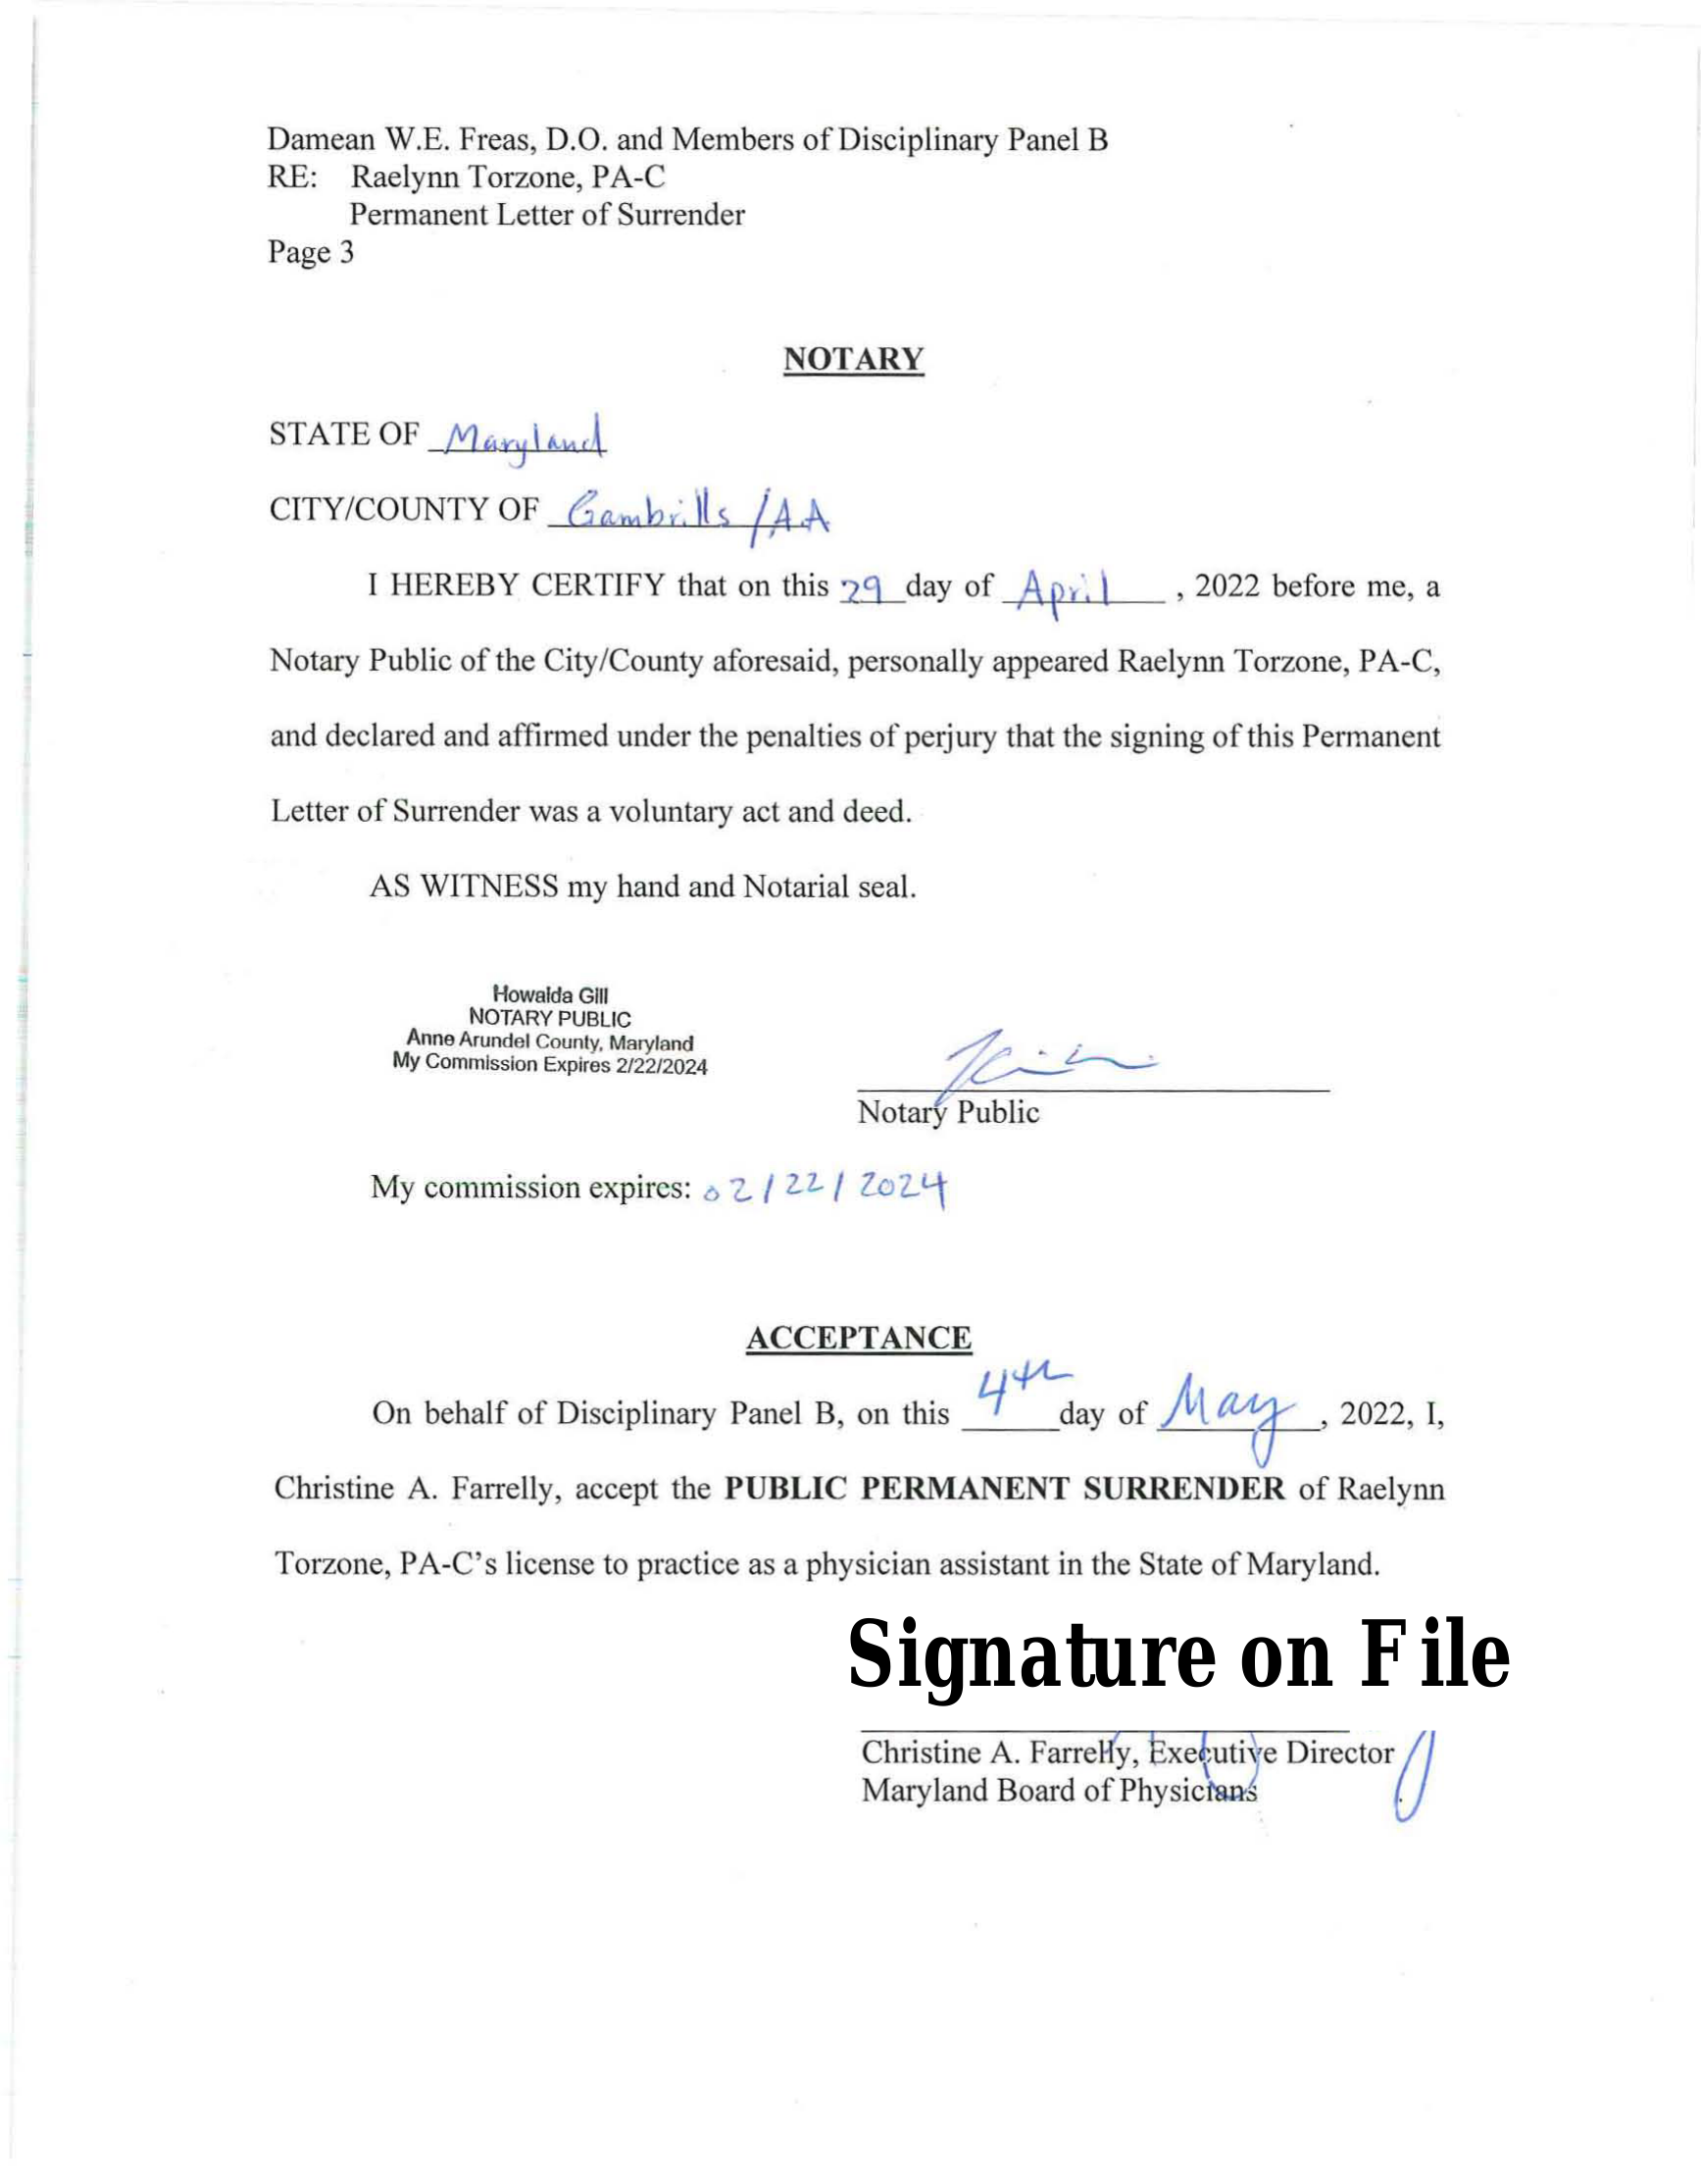 Damean W.E. Freas, D.O. and Members of Disciplinary Panel B
RE: Raelynn Torzone, PA-C
Permanent Letter of Surrender
Page 3
NOTARY
STATE OF Maryland
CITY/COUNTY OF Gambrills /AA
I HEREBY CERTIFY that on this 29 day of April, 2022 before me, a
Notary Public of the City/County aforesaid, personally appeared Raelynn Torzone, PA-C,
and declared and affirmed under the penalties of perjury that the signing of this Permanent
Letter of Surrender was a voluntary act and deed.
AS WITNESS my hand and Notarial seal.
Howaida Gill
NOTARY PUBLIC
Anne Arundel County, Maryland
My Commission Expires 2/22/2024
Notary Public
My commission expires: 02/22/2024
ACCEPTANCE
On behalf of Disciplinary Panel B, on this 4th day of May, 2022, I,
Christine A. Farrelly, accept the PUBLIC PERMANENT SURRENDER of Raelynn
Torzone, PA-C's license to practice as a physician assistant in the State of Maryland.
Signature on File
Christine A. Farrelly, Executive Director
Maryland Board of Physicians